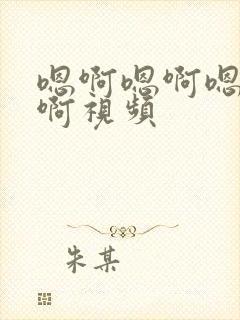 嗯啊嗯啊嗯
啊視頻
朱某